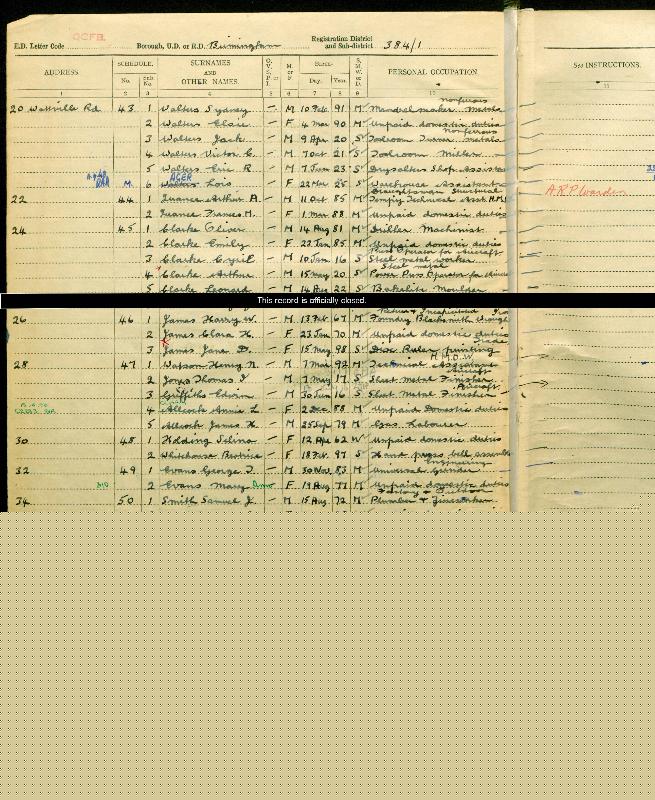 QCFB
E.D. Letter Code Borough, U.D. or R.D. Birmingham Registration District and Sub-district 384/1
ADDRESS SCHEDULE. SURNAMES AND OTHER NAMES. O. V. S. P. or I. M. or F. BIRTH— S. M. W. or D. PERSONAL OCCUPATION. See INSTRUCTIONS.
No. Sub. No. Day. Year.
1 2 3 4 5 6 7 8 9 10 11
20 Wattville Rd 43 1 Walters Sydney — M 10 Feb 91 M Mandrel maker nonferrous metals
2 Walters Elsie — F 4 Mar 90 M Unpaid domestic duties
3 Walters Jack — M 9 Apr 20 S Toolroom Turner nonferrous metals
4 Walters Victor C. — M 7 Oct 21 S Toolroom Miller
5 Walters Eric R — M 7 Jun 23 S Drysalters Shop Assistant
M. 6 Walters AGER Lois — F 22 Mar 25 S Warehouse Assistant
A.R.P Warden
22 44 1 Juance Arthur A. — M 11 Oct 85 M Draughtsman Structural Tempy Technical Asst H.M.
2 Juance Frances M. — F 1 Mar 88 M Unpaid domestic duties
24 45 1 Clarke Oliver — M 14 Aug 81 M Driller Machinist
2 Clarke Emily — F 22 Jan 85 M Unpaid domestic duties
3 Clarke Cyril — M 10 Jun 16 S Steel metal worker
4 Clarke Arthur — M 15 May 20 S Steel metal Power Press Operator for
5 Clarke Leonard — M 14 Aug 22 S Bakelite Moulder
This record is officially closed.
26 46 1 James Harry W. — M 13 Feb 67 M Foundry Blacksmith
2 James Clara H. — F 23 Jan 70 M Unpaid domestic duties
3 James Jane D. — F 15 May 98 S Disc Ruler printing Trade
28 47 1 Watson Henry N. — M 7 Mar 92 M Technical Assistant H.M.O.W.
2 Jones Thomas I — M 7 May 17 S Sheet Metal Finisher Aircraft
3 Griffiths Edwin — M 30 Jun 16 S Sheet Metal Finisher Aircraft
4 Allcock Annie L — F 2 Dec 88 M Unpaid Domestic duties
5 Allcock James H — M 25 Sep 79 M Gas Labourer
30 48 1 Holding Selina — F 12 Apr 62 W Unpaid domestic duties
2 Whitehouse Beatrice — F 18 Feb 97 S Hand press bell assembler
32 49 1 Evans George T. — M 30 Nov 83 M Universal Grinder Engineering
2 Evans Mary Ann — F 19 Aug 77 M Unpaid domestic duties
34 50 1 Smith Samuel J. — M 15 Aug 72 M Factory & Outdoor Plumber &